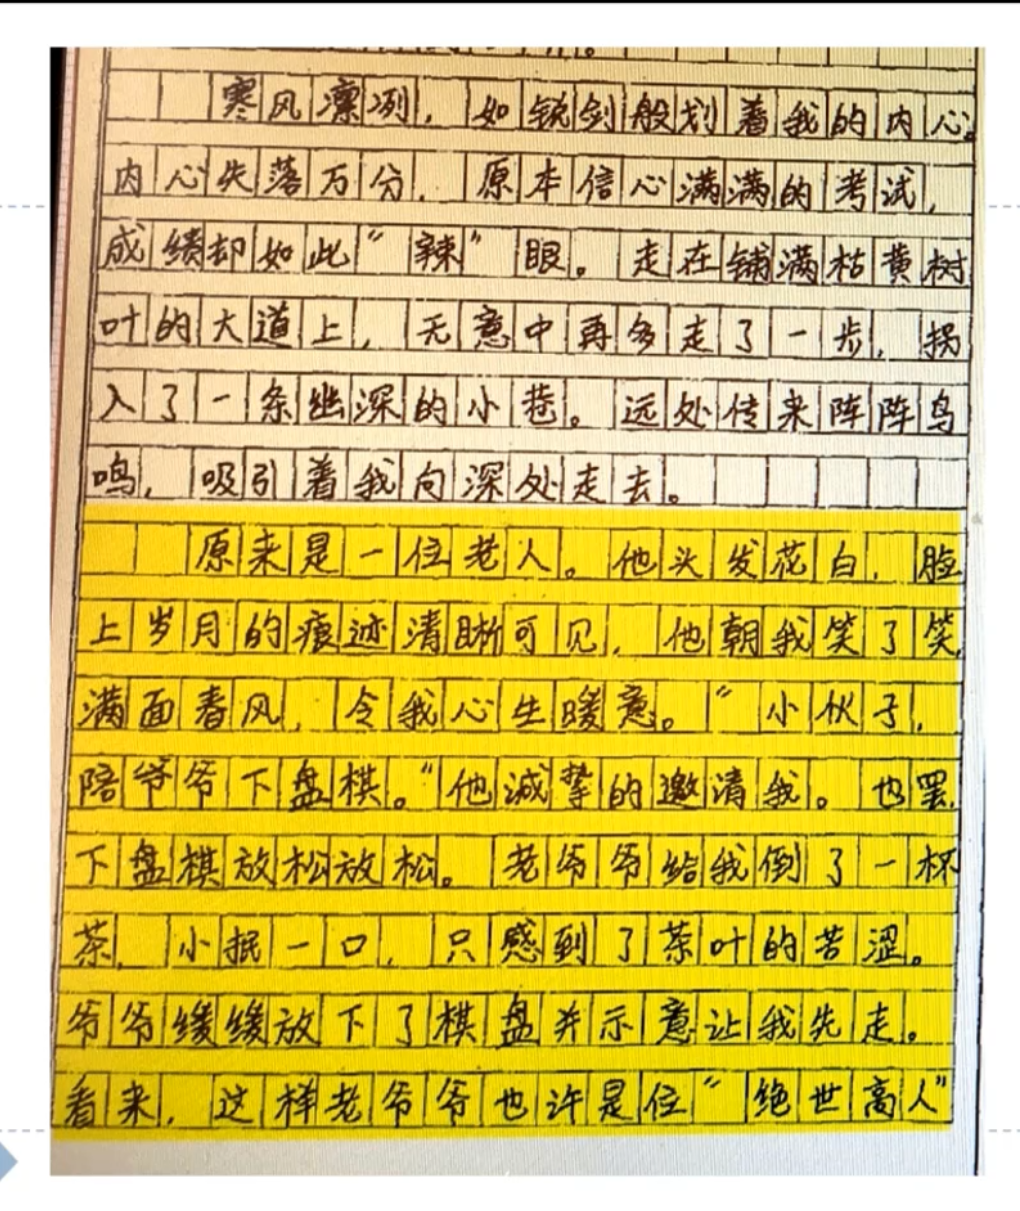 寒风凛冽，如锐剑般划着我的内心。
内心失落万分，原本信心满满的考试，
成绩却如此“辣”眼。走在铺满枯黄树
叶的大道上，无意中再多走了一步，拐
入了一条幽深的小巷。远处传来阵阵鸟
鸣，吸引着我向深处走去。
原来是一位老人。他头发花白，脸
上岁月的痕迹清晰可见，他朝我笑了笑，
满面春风，令我心生暖意。“小伙子，
陪爷爷下盘棋。“他诚挚的邀请我。也罢，
下盘棋放松放松。老爷爷给我倒了一杯
茶，小抿一口，只感到了茶叶的苦涩。
爷爷缓缓放下了棋盘并示意让我先走。
看来，这样老爷爷也许是位“绝世高人”